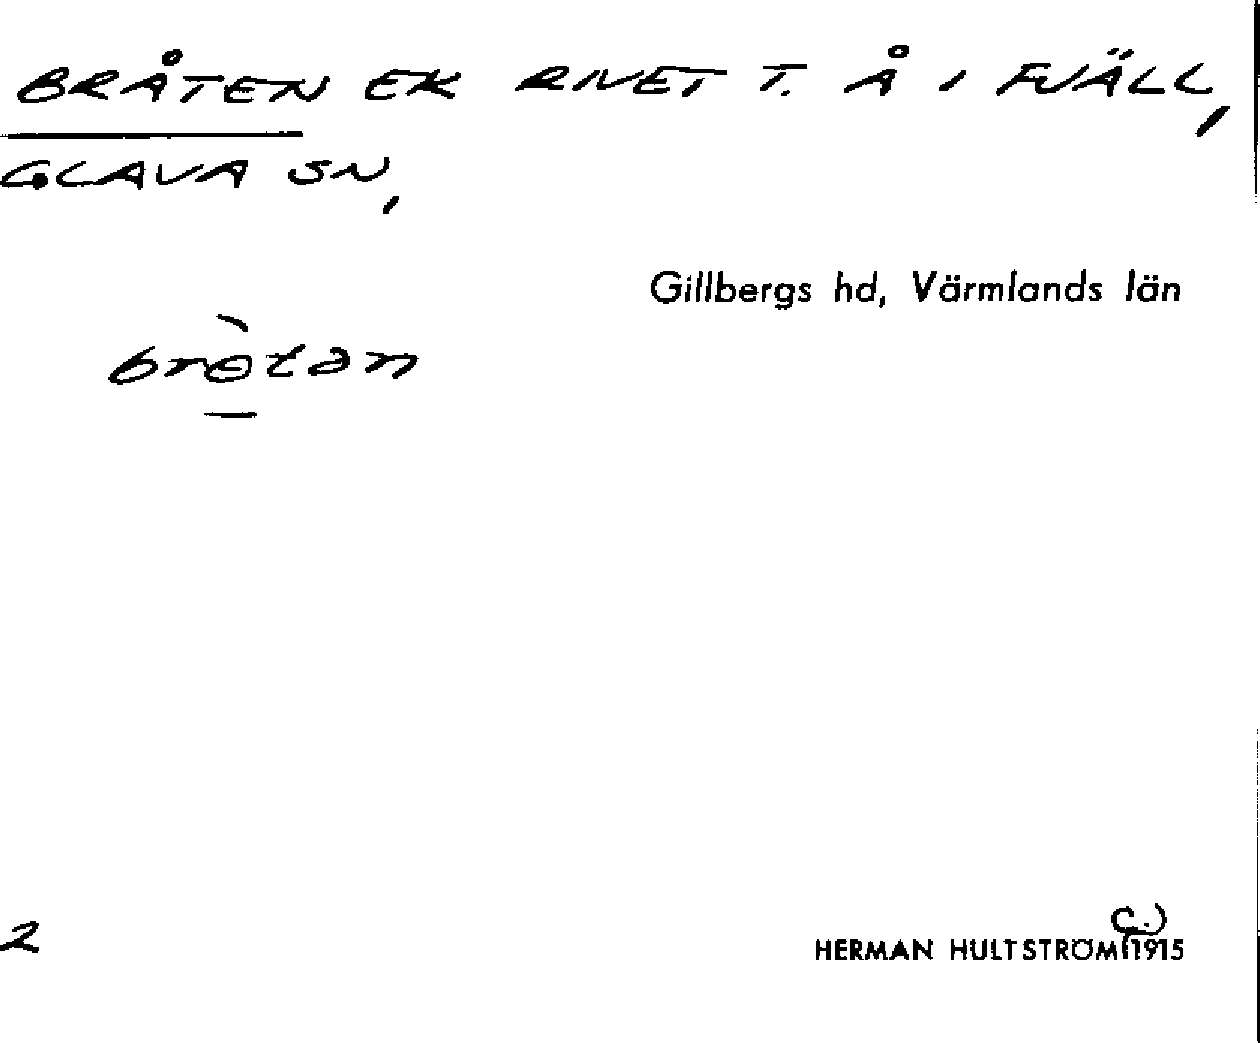 BRÅTEN EK RIVET T. Å I FJÄLL,
GLAVA SN,
Gillbergs hd, Värmlands län
brɵ̀tən
2
HERMAN HULTSTRÖM (C.) 1915